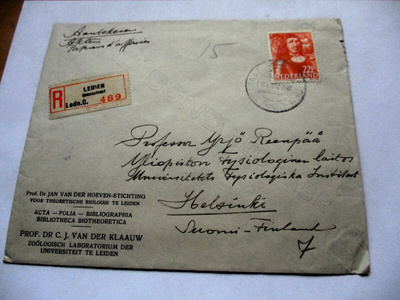 Papiers d'affaires
15
22½ c
NEDERLAND
R
LEIDEN
Ledn.C. 489
Professor Yrjö Reenpää
Yliopiston Fysiologinen laitos
Universitetets Fysiologiska Institut
Helsinki
Suomi-Finland
Prof. Dr JAN VAN DER HOEVEN-STICHTING
VOOR THEORETISCHE BIOLOGIE TE LEIDEN
ACTA - FOLIA - BIBLIOGRAPHIA
BIBLIOTHECA BIOTHEORETICA
PROF. DR C. J. VAN DER KLAAUW
ZOÖLOGISCH LABORATORIUM DER
UNIVERSITEIT TE LEIDEN